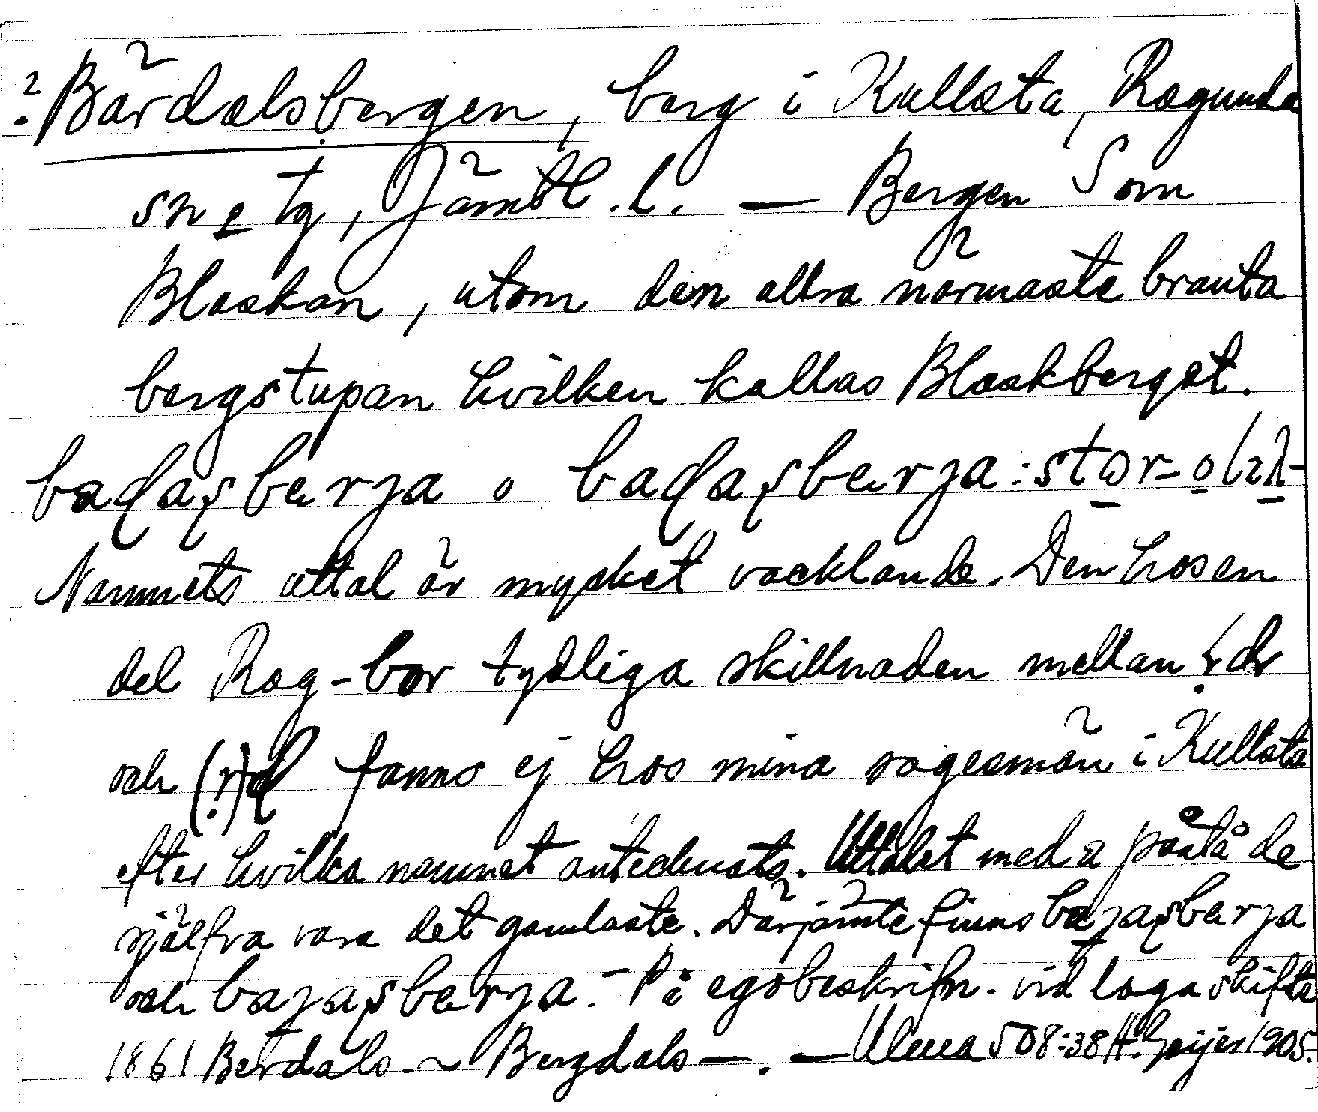 ? Bärdalsbergen, berg i Kullsta, Ragunda
sn o tg, Jämtl. l. — Bergen som
Blaskan, utom den allra närmaste branta
bergstupan hvilken kallas Blaskberget.
badasberja o badasberja: stor- o
Namnets uttal är mycket vacklande. Den hos en
del Rag-bor tydliga skillnaden mellan
och (r)d fanns ej hos mina sagesmän i Kullsta
efter hvilka namnet antecknats. Uttalet med a påstå de
själfva vara det gamlaste. Därjämte finns bajasberja
och bajasberja. - På egobeskrifn. vid laga skifte
1861 Berdals- ~ Bergdals —. — Ulma 508:38 H. Geijer 1905.